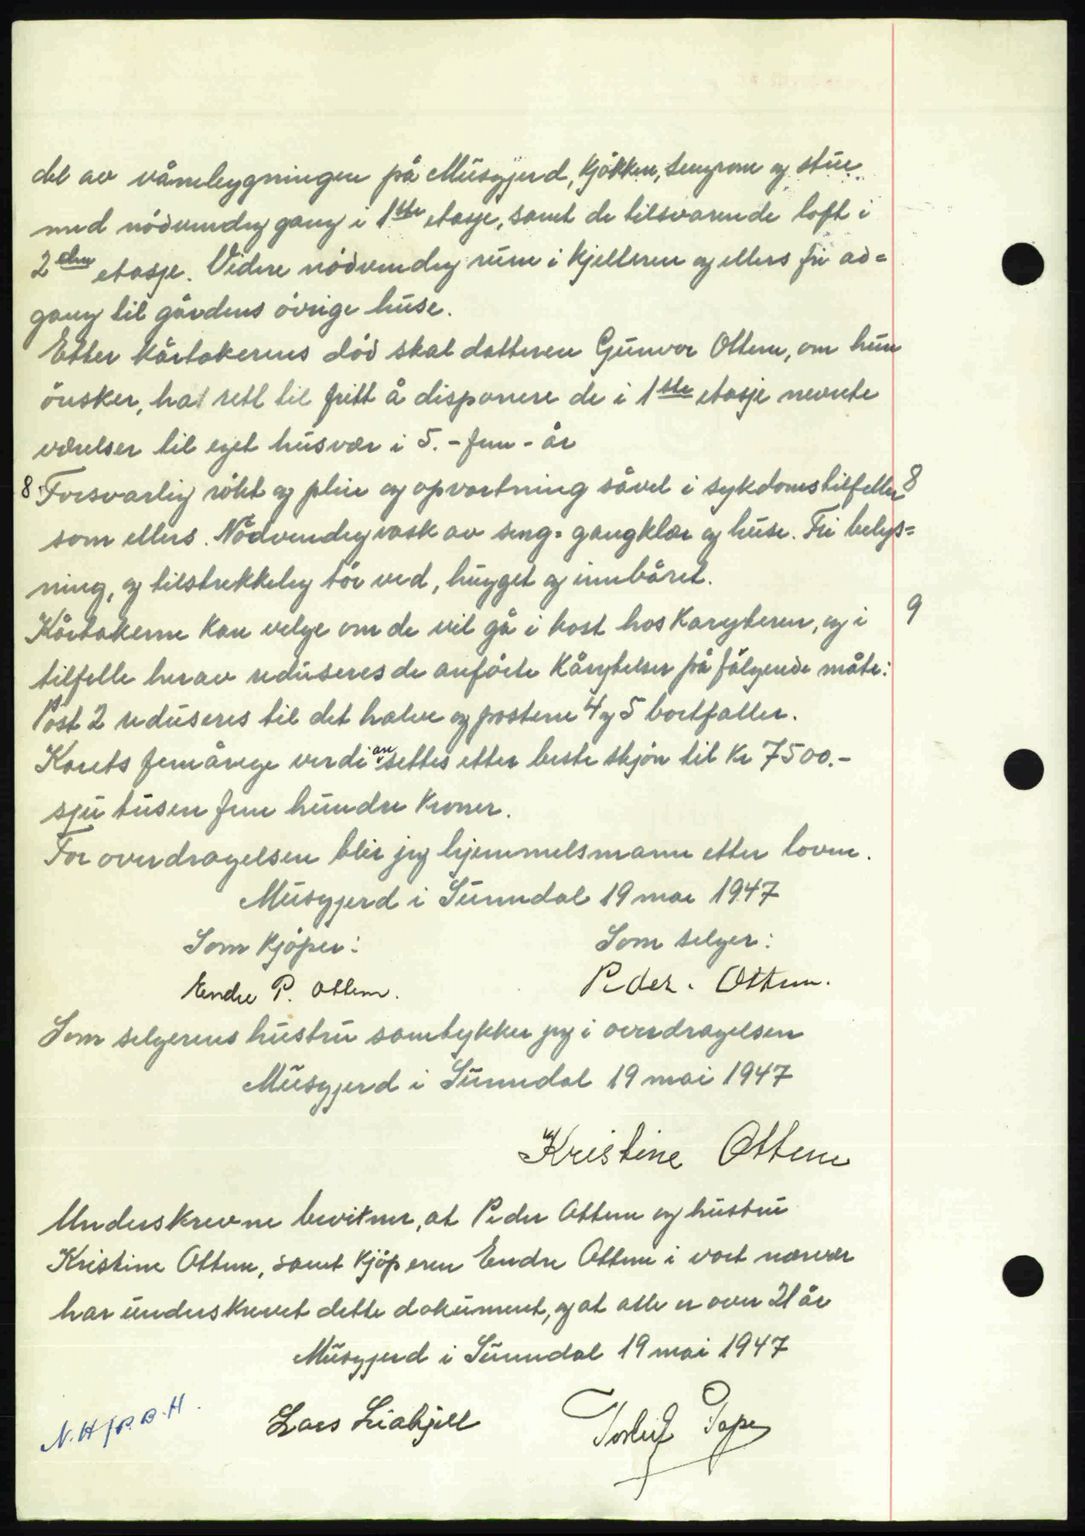 del av våningbygningen på Musgjerd, kjökken, sengrom og stue
med nödvendig gang i 1ste etasje, samt de tilsvarende loft i
2den etasje. Videre nödvendig rum i kjelleren og ellers fri ad=
gang til gårdens övrige huse.
Etter kårtakernes död skal datteren Gunvor Ottem, om hun
önsker, hat rett til fritt å disponere de i 1ste etasje nevnte
værelser til eget husvær i 5.- fem - år
8. Forsvarlig rökt og pleie og opvartning såvel i sykdomstilfeller 8
som ellers. Nödvendig vask av seng= gangklær og huse. Fri belys=
ning, og tilstrekkelig tör ved, hugget og innbåret.
Kårtakerne kan velge om de vil gå i kost hos kåryteren, og i 9
tilfelle herav reduseres de anförte kårytelser på fölgende måte:
Post 2 reduseres til det halve og postene 4 og 5 bortfaller.
Kårets femårige verdi ansettes etter beste skjön til kr 7500.-
sju tusen fem hundre kroner.
For overdragelsen blir jeg hjemmelsmann etter loven.
Musgjerd i Sunndal 19 mai 1947
Som kjöper: Som selger:
Endre P. Ottem. Peder. Ottem.
Som selgerens hustru samtykker jeg i overdragelsen
Musgjerd i Sunndal 19 mai 1947
Kristine Ottem
Underskrevne bevitner, at Peder Ottem og hustru
Kristine Ottem, samt kjöperen Endre Ottem i vort nærvær
har underskrevet dette dokument, og at alle er over 21 år
Musgjerd i Sunndal 19 mai 1947
N.H/P.B.H. Lars Liahjell Torleif